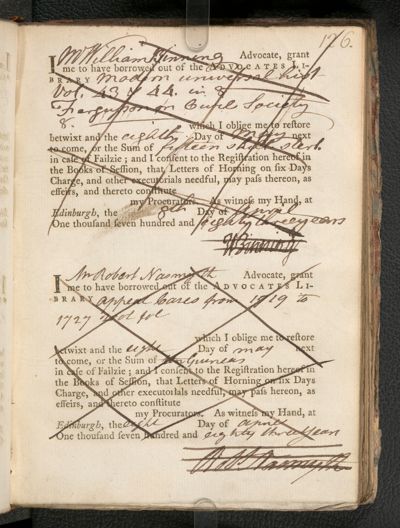 176.
I Mr William Advocate, grant
me to have borrowed out of the ADVOCATES LI-
BRARY Modern universal hist
Vol. 43 & 44. in 8
Ferguson on Civil Society
8. which I oblige me to reſtore
betwixt and the eighth Day of next
to come, or the Sum of fifteen sterl
in caſe of Failzie; and I conſent to the Regiſtration hereof in
the Books of Seſſion, that Letters of Horning on ſix Days
Charge, and other executorials needful, may paſs thereon, as
effeirs, and thereto conſtitute
my Procurators. As witneſs my Hand, at
Edinburgh, the 8th Day of April
One thouſand ſeven hundred and eighty three years
I Mr Robert Nasmyth Advocate, grant
me to have borrowed out of the ADVOCATES LI-
BRARY appeal Cases from 1719 to
1727
which I oblige me to reſtore
betwixt and the eight Day of may next
to come, or the Sum of Guineas
in caſe of Failzie; and I conſent to the Regiſtration hereof in
the Books of Seſſion, that Letters of Horning on ſix Days
Charge, and other executorials needful, may paſs hereon, as
effeirs, and thereto conſtitute
my Procurators. As witneſs my Hand, at
Edinburgh, the eight Day of april
One thouſand ſeven hundred and eighty three years
Robt Nasmyth